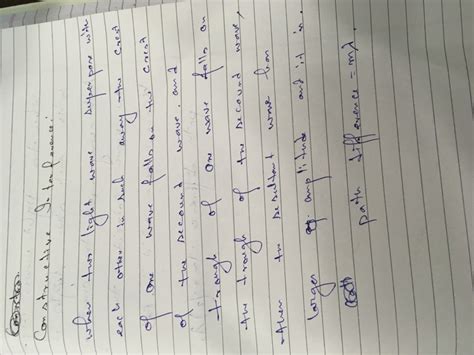 Constructive Interference:
when two light wave superpose with
each other in such away the crest
of one wave falls on the crest
of the second wave and
trough of one wave falls on
the trough of the second wave,
then the resultant wave has
larger amplitude and it is
path difference = mλ